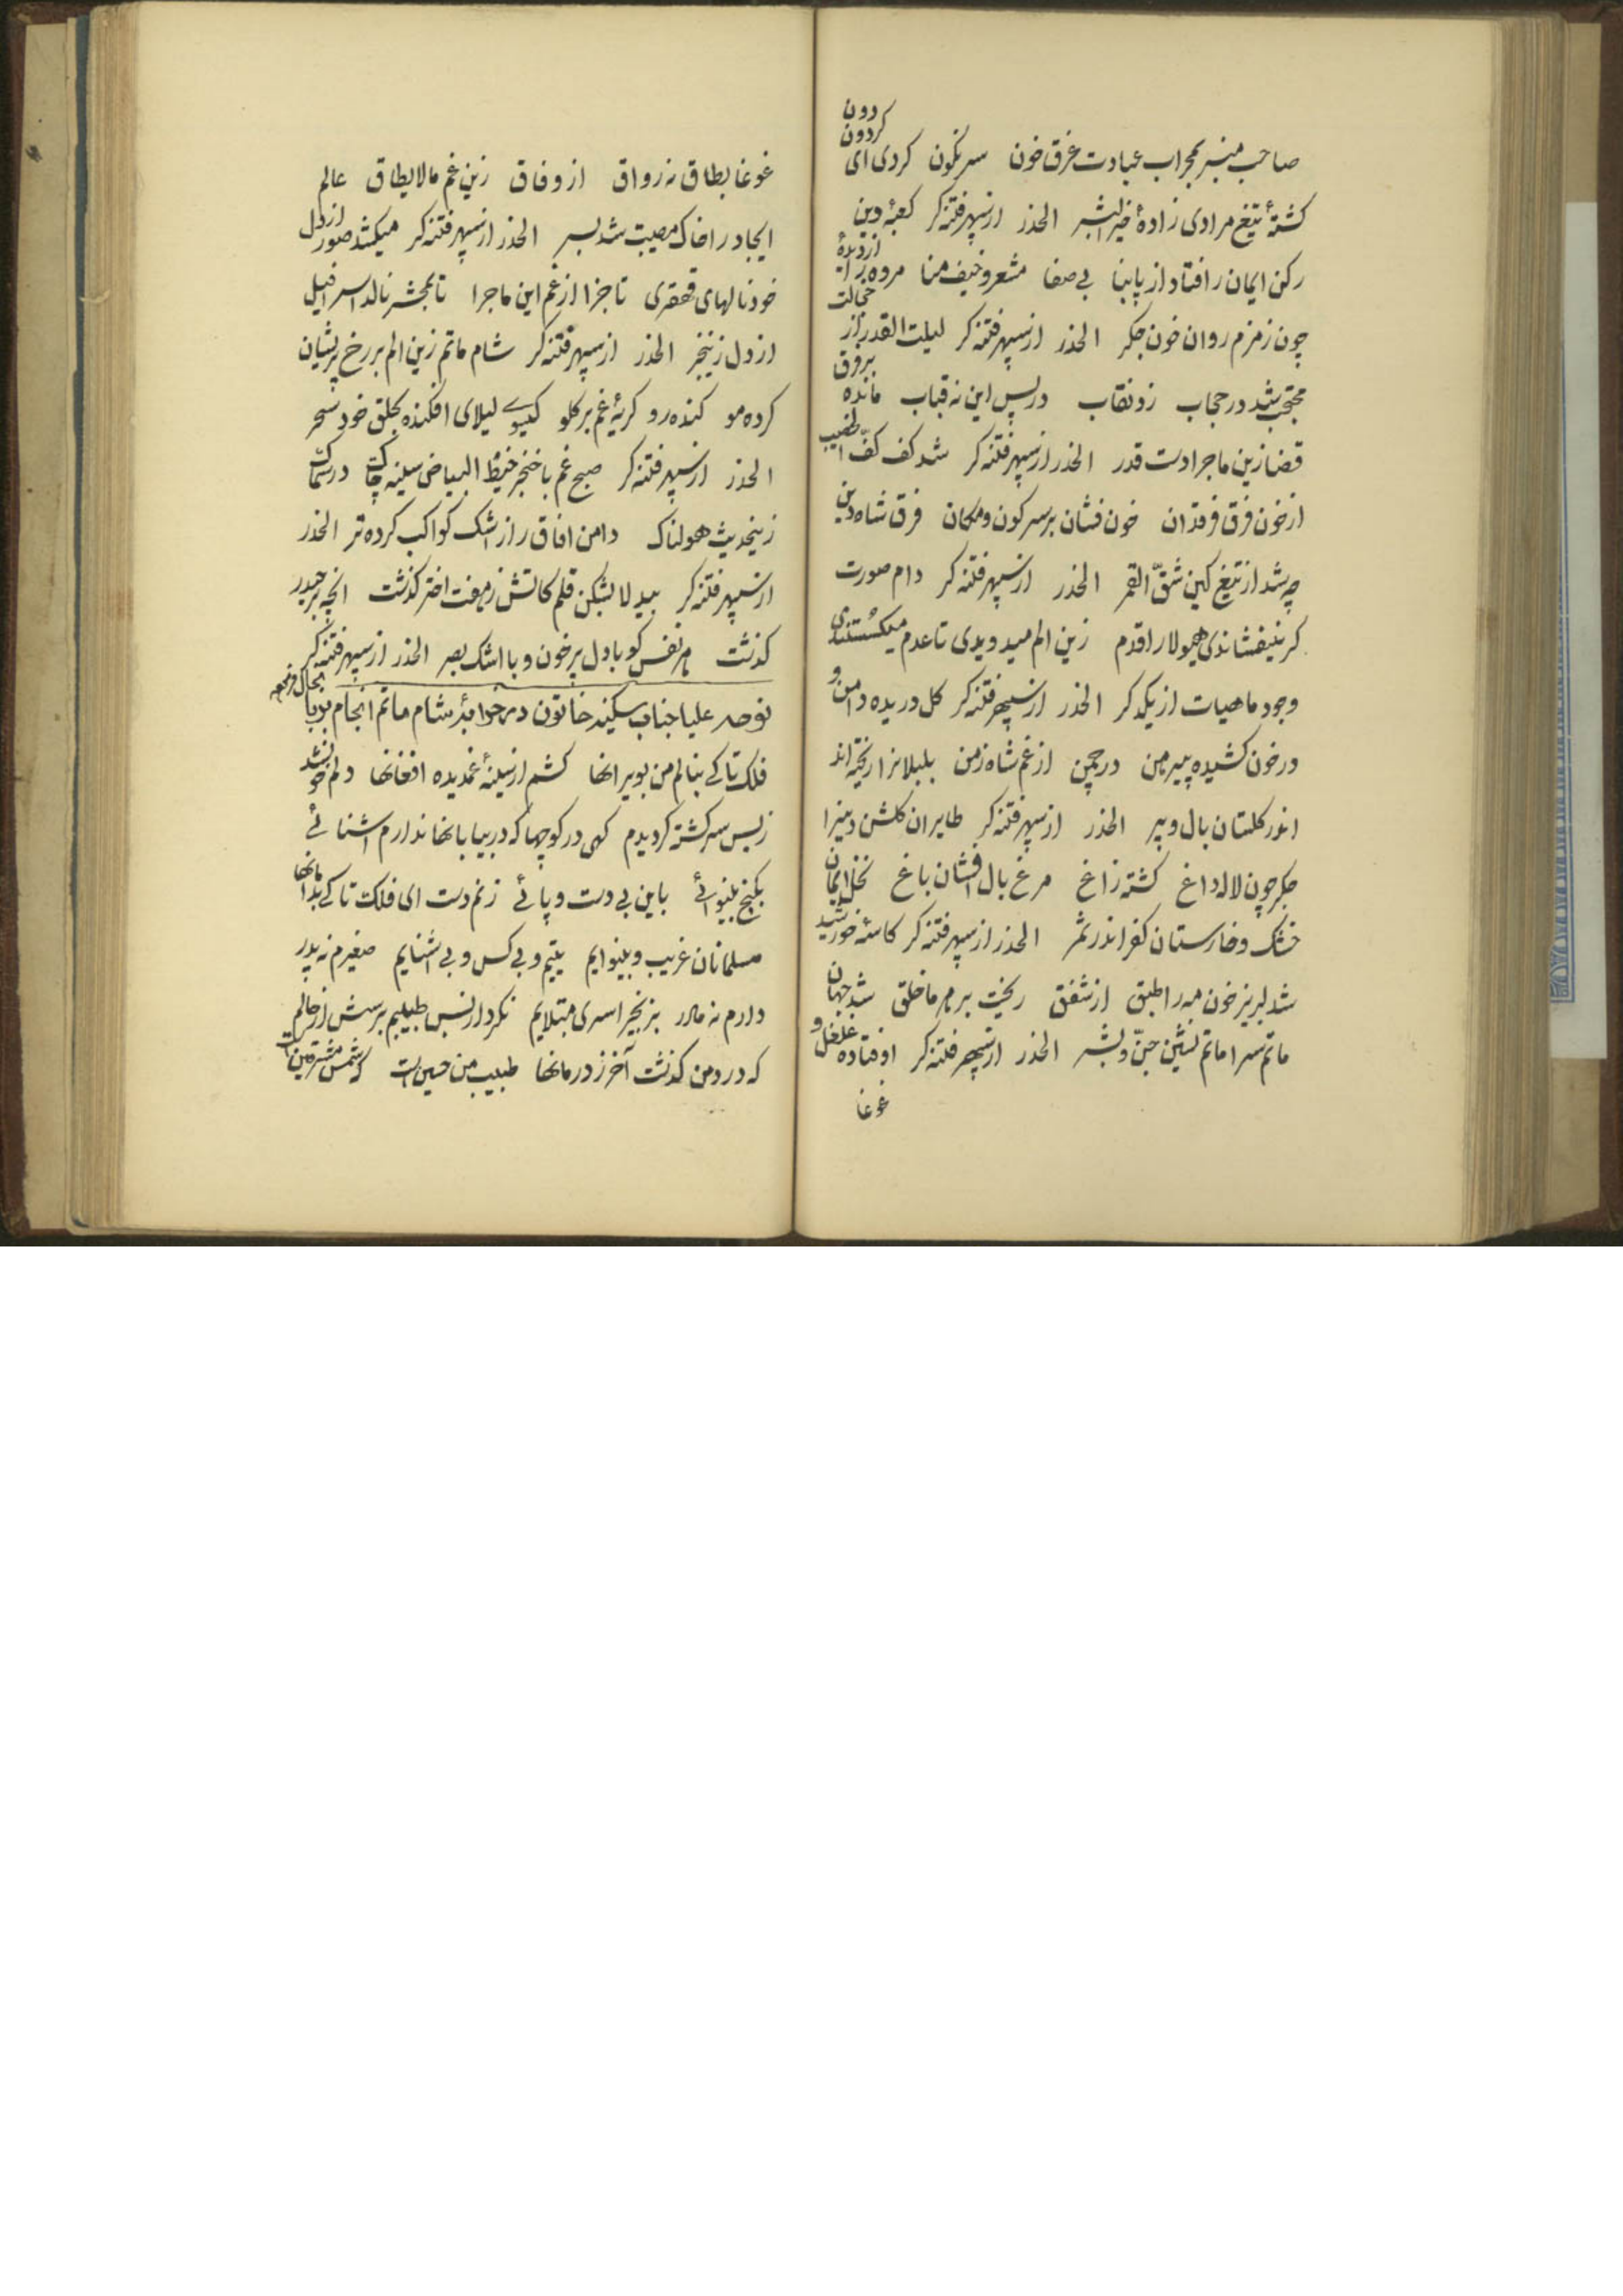 صاحب منبر بمحراب عبادت غرق خون سرنگون کردی ای کردون دون
کشتهٔ تیغ مرادی زادهٔ خیر البشر الحذر از سپهر فتنه کر کعبهٔ دین
رکن ایمان را فتاد از پا بنا بی صفا مشعر و خیف منا مروه را از دیدهٔ
چون زمزم روان خون جکر الحذر از سپهر فتنه کر لیلت القدر از خجالت
محتجب شد در حجاب زد نقاب در پس این نه قباب مانده بر فرق
قضا زین ماجرا دست قدر الحذر از سپهر فتنه کر شد کف کفّ الخضیب
از خون فرق فرقدان خون فشان بر سر کون و مکان فرق شاه دین
چه شد از تیغ کین شقّ القمر الحذر از سپهر فتنه کر دام صورت
کر نیفشاندی هیولا را قدم زین الم میدویدی تا عدم میکسستندی
وجود ماهیات از یکدکر الحذر از سپهر فتنه کر کل دریده دامن و
در خون کشیده پیرهن در چمن از غم شاه زمن بلبلانرا ریخته اند
اندر کلستان بال و پر الحذر از سپهر فتنه کر طایران کلشن دینرا
جکر چون لاله داغ کشته زاغ مرغ بال افشان باغ نخل ایمان
خشک و خارستان کفر اندر ثمر الحذر از سپهر فتنه کر کاسهٔ خورشید
شد لبریز خون مه را طبق از شفق ریخت بر هر ما خلق شد جهان
ماتم سرا ماتم نشین جنّ و بشر الحذر از سپهر فتنه کر اوفتاده غلغل و
غوغا
غوغا بطاق نه رواق از وفاق زین غم مالایطاق عالم
ایجاد را خاک مصیبت شد بسر الحذر از سپهر فتنه کر میکشد صور از دل
خود نالهای قهقری تا جزا از غم این ماجرا تا بمحشر نالد اسرافیل
از دل زینخبر الحذر از سپهر فتنه کر شام ماتم زین الم بر رخ پریشان
کرده مو کنده رو کریهٔ غم بر کلو کیسوی لیلای افکنده بحلق خود سحر
الحذر از سپهر فتنه کر صبح غم با خنجر خیط البیاض سینه چاک در سماک
زینحدیث هولناک دامن افاق را از اشک کواکب کرده تر الحذر
از سپهر فتنه کر بیدلا بشکن قلم کاتش ز هفت اختر کذشت انچه بر حیدر
کذشت هر نفس کو با دل پر خون و با اشک بصر الحذر از سپهر فتنه کر
نوحه علیا جناب سکینه خاتون در خرابهٔ شام ماتم انجام
فلک تا کی بنالم من بویرانها کشم از سینهٔ غمدیده افغانها دلم خون شد
ز بس سرکشته کردیدم کهی در کوچها که در بیابانها ندارم اشنائی
بکنج بینوائی باین بی دست و پائی زنم دست ای فلک تا کی بدامانها
مسلمانان غریب و بینوایم یتیم و بی کس و بی اشنایم صغیرم نه پدر
دارم نه مادر بزنجیر اسری مبتلایم نکرد از بس طبیبم پرسش از حالم
که درد من کذشت آخر ز درمانها طبیب من حسین است که شمس مشرقین است